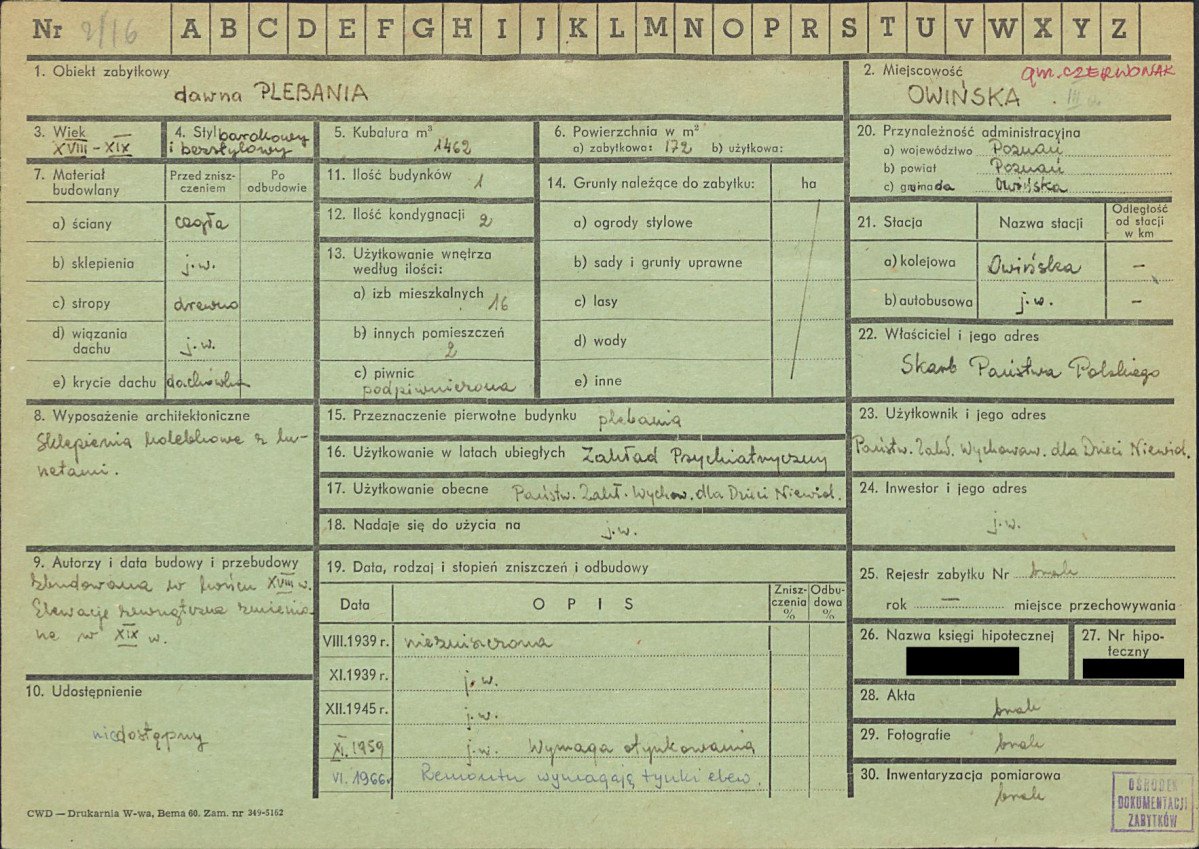 Nr 2/16 A B C D E F G H I J K L M N O P R S T U V W X Y Z
1. Obiekt zabytkowy
dawna PLEBANIA
2. Miejscowość gm. CZERWONAK
OWIŃSKA
3. Wiek
XVIII - XIX
4. Styl barokowy
i bezstylowy
5. Kubatura m³
1462
6. Powierzchnia w m²
a) zabytkowa: 172 b) użytkowa:
20. Przynależność administracyjna
a) województwo Poznań
b) powiat Poznań
c) gromada Owińska
7. Materiał
budowlany
Przed znisz-
czeniem
Po
odbudowie
a) ściany cegła
b) sklepienia j.w.
c) stropy drewno
d) wiązania
dachu j.w.
e) krycie dachu dachówka
11. Ilość budynków 1
12. Ilość kondygnacji 2
13. Użytkowanie wnętrza
według ilości:
a) izb mieszkalnych 16
b) innych pomieszczeń
2
c) piwnic
podpiwniczona
14. Grunty należące do zabytku: ha
a) ogrody stylowe
b) sady i grunty uprawne
c) lasy
d) wody
e) inne
21. Stacja Nazwa stacji
Odległość
od stacji
w km
a) kolejowa Owińska –
b) autobusowa j.w. –
22. Właściciel i jego adres
Skarb Państwa Polskiego
8. Wyposażenie architektoniczne
Sklepienia kolebkowe z lu-
netami.
15. Przeznaczenie pierwotne budynku plebania
16. Użytkowanie w latach ubiegłych Zakład Psychiatryczny
17. Użytkowanie obecne Państw. Zakł. Wychow. dla Dzieci Niewid.
18. Nadaje się do użycia na j.w.
23. Użytkownik i jego adres
Państw. Zakł. Wychowaw. dla Dzieci Niewid.
24. Inwestor i jego adres
j.w.
9. Autorzy i data budowy i przebudowy
Zbudowana w końcu XVIII w.
Elewacje zewnętrzne zmienio-
ne w XIX w.
10. Udostępnienie
niedostępny
19. Data, rodzaj i stopień zniszczeń i odbudowy
Data O P I S
Znisz-
czenia
%
Odbu-
dowa
%
VIII.1939 r. niezniszczona
XI.1939 r. j.w.
XII.1945 r. j.w.
XI.1959 j.w. Wymaga otynkowania
VI. 1966r Remontu wymagają tynki elew.
25. Rejestr zabytku Nr brak
rok — miejsce przechowywania
26. Nazwa księgi hipotecznej
27. Nr hipo-
teczny
28. Akta
brak
29. Fotografie
brak
30. Inwentaryzacja pomiarowa
brak
OŚRODEK
DOKUMENTACJI
ZABYTKÓW
CWD — Drukarnia W-wa, Bema 60. Zam. nr 349-5162